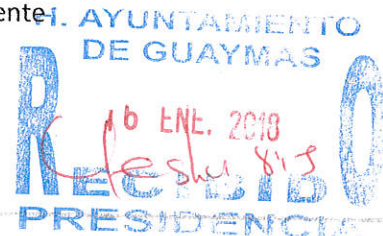 ente
H. AYUNTAMIENTO
DE GUAYMAS
16 ENE. 2018
RECIBIDO
PRESIDENCIA